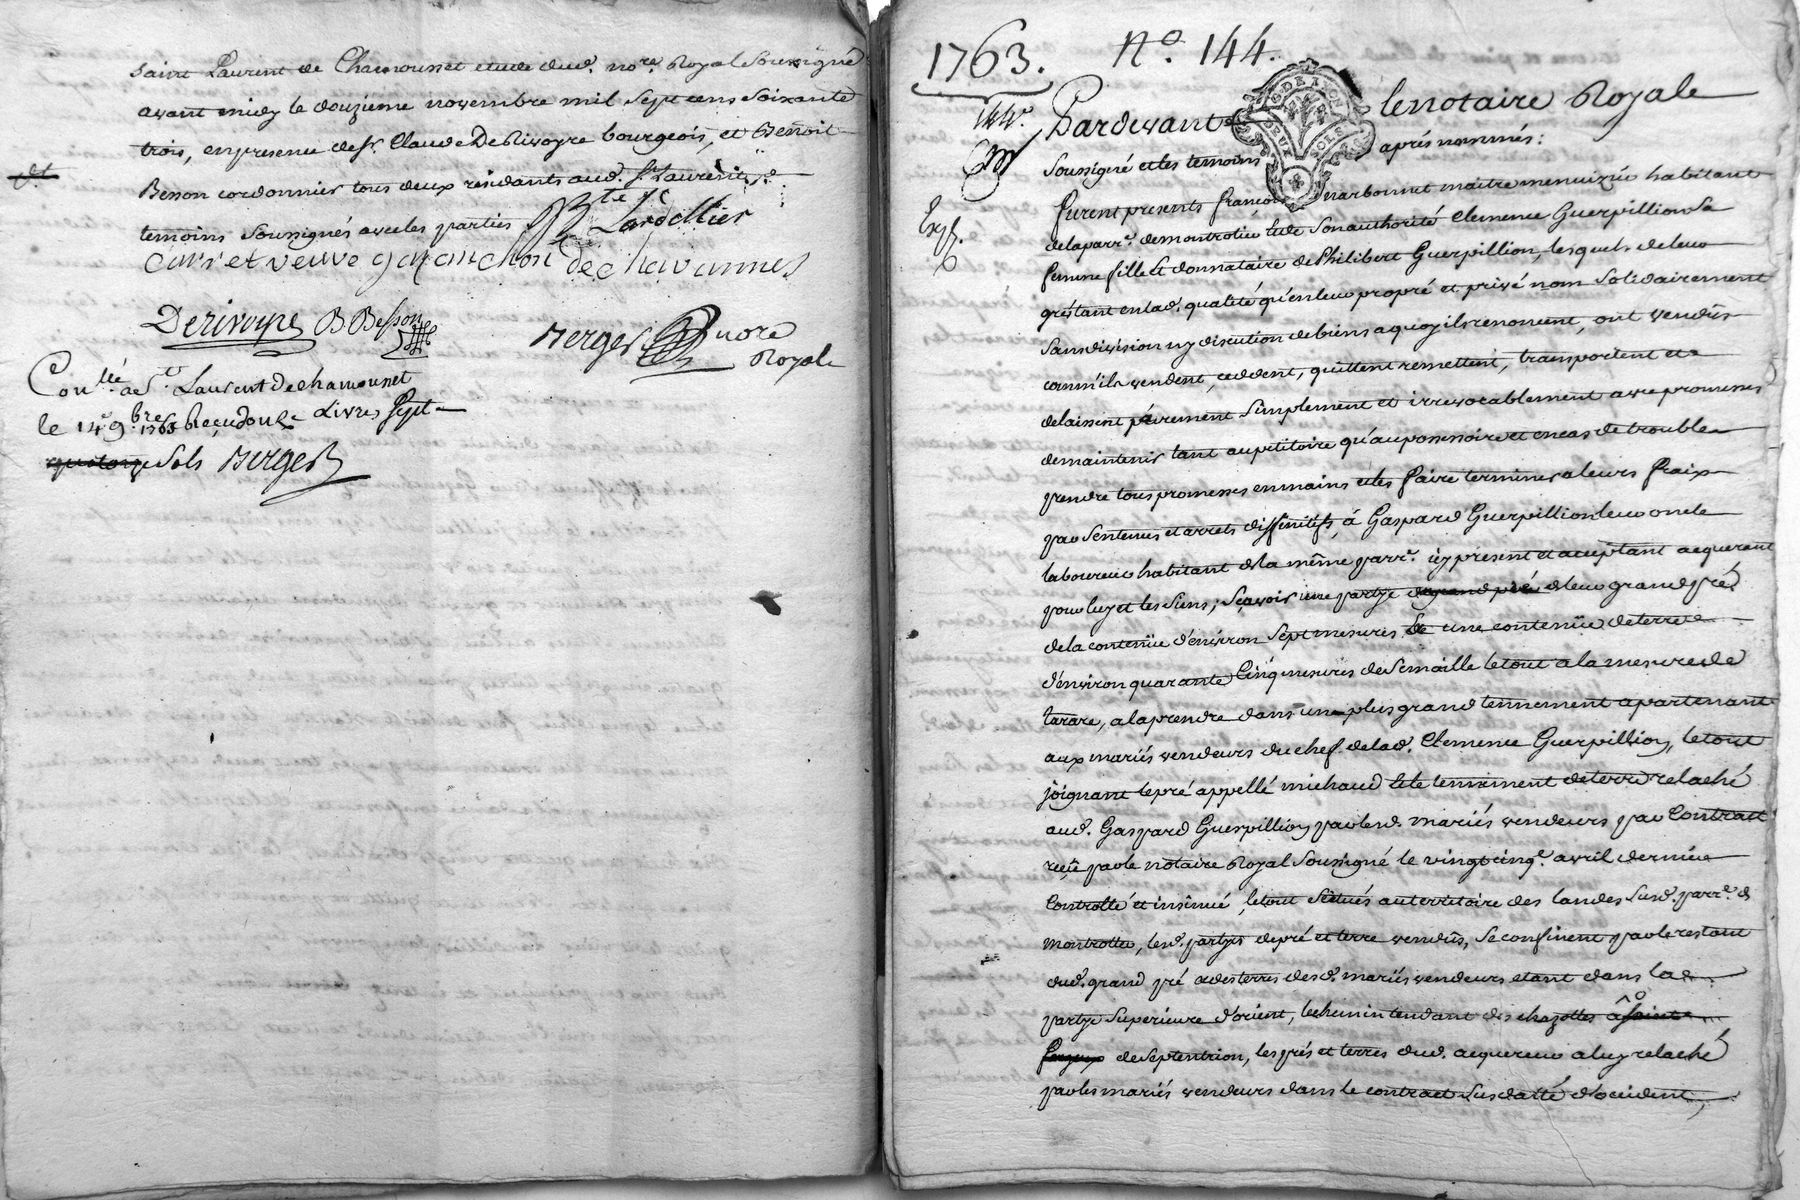 saint Laurent de Chamousset etude dud. no.re Royal Soussigné
avant midy le douzieme novembre mil sept cens soixante
trois, en presence de Sr. Claude De Rivoyre bourgeois, et Benoit
Besson cordonnier tous deux residants aud. St. Laurent,
temoins soussignés avec les parties
Larollier
veuve de chavannes
Derivoyre B Besson
Berger nore
Royal
Con.llé a St. Laurent de chamousset
le 14e 9.bre 1763 Reçu douze Livres Sept
Sols Berger
1763. No. 144.
144e.
Pardevant le notaire Royale
Soussigné et les temoins après nommés:
Exp.
furent presents françois narbonnet maitre menuizié habitant
de la parr.e de montrotier et de son authorité Clemence Guerpillion sa
femme fille et donnataire de Philibert Guerpillion, lesquels de leur
gré tant en lad. qualité qu'en leur propré et privé nom Solidairement
sans division ny discution de biens a quoy ils renoncent, ont vendus
comm'ils vendent, ceddent, quittent remettent, transportent et
delaissent purement simplement et irrevocablement avec promesses
de maintenir tant au petitoire qu'au possessoire et en cas de trouble
prendre tous promesses en mains et les faire terminer a leurs fraix
par Sentences et arrets diffinitifs, á Gaspard Guerpillion leur oncle
laboureur habitant de la même parr.e icy present et acceptant acquereur
pour luy et les siens; Sçavoir une partye du grand pré de leur grand pré
de la contenüe d'environ Sept mesures et une contenüe de terre
d'environ quarante Cinq mesures de Semaille le tout a la mesure de
tarare, a la prendre dans un plus grand tennement apartenant
aux mariés vendeurs du chef de lad. Clemence Guerpillion, le tout
joignant le pré appellé michaud et le tennement de terre relaché
aud. Gaspard Guerpillion par lesd. mariés vendeurs par Contract
reçu par le notaire Royal Soussigné le vingt cinq.e avril dernier
Controllé et insinué, le tout scitués au territoire des landes Susd. parr.e de
montrottier, lesd. partyes de pré et terre vendus, se confinent par le restant
dud. grand pré et des terres desd. mariés vendeurs etant dans la
partye superieure d'orient, le chemin tendant des chazottes á
de Septentrion, les prés et terres dud. acquereur a luy relaché
par les mariés vendeurs dans le contract Susdatté d'occident,